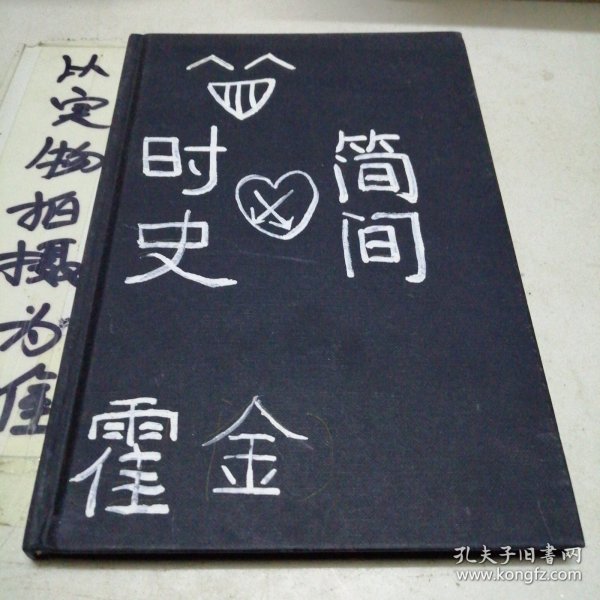 以定物拍摄为准
时 简
史 间
霍金
孔夫子旧書网
www.kongfz.com